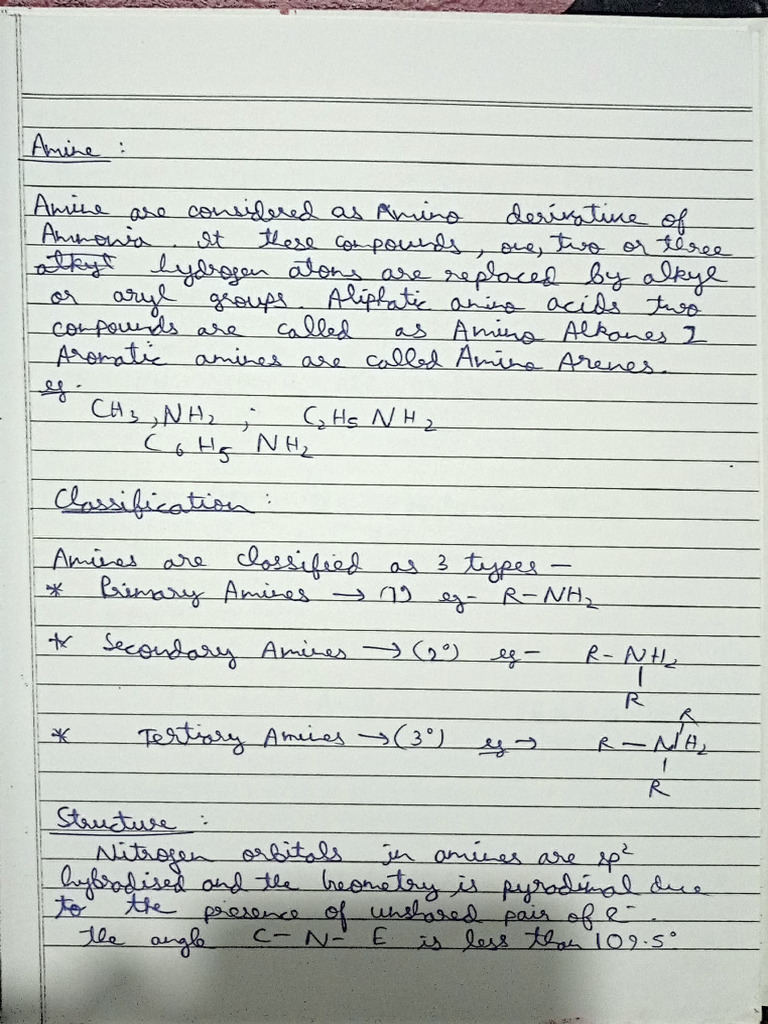 Amine :
Amine are considered as Amino derivative of
Ammonia. It these compounds, one, two or three
alkyl hydrogen atons are replaced by alkyl
or aryl groups. Aliphatic amino acids two
compounds are called as Amino Alkanes &
Aromatic amines are called Amino Arenes.
eg.
CH3, NH2 ; C2H5 NH2
C6H5 NH2
Classification :
Amines are classified as 3 types —
* Primary Amines → 1° eg- R-NH2
* Secondary Amines → (2°) eg - R-NH2
R
R
* Tertiary Amines → (3°) eg → R — NH2
R
Structure :
Nitrogen orbitals in amines are sp2
hybradised and the Geometry is pyradimal due
to the presence of unshared pair of e-.
the angle C - N - E is less than 109.5°